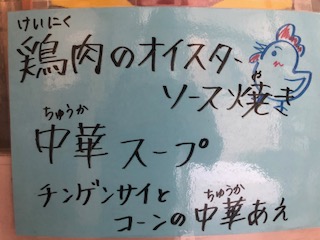 けいにく
鶏肉のオイスター
や
ソース焼き
ちゅうか
中華スープ
チンゲンサイと
ちゅうか
コーンの中華あえ